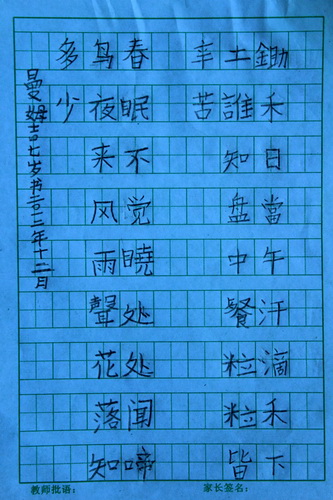 鋤禾日當午汗滴禾下
土誰知盘中餐粒粒皆
辛苦
春眠不觉曉处处闻啼
鸟夜来风雨聲花落知
多少
曼七岁书二〇一二年十二月
教师批语： 家长签名：